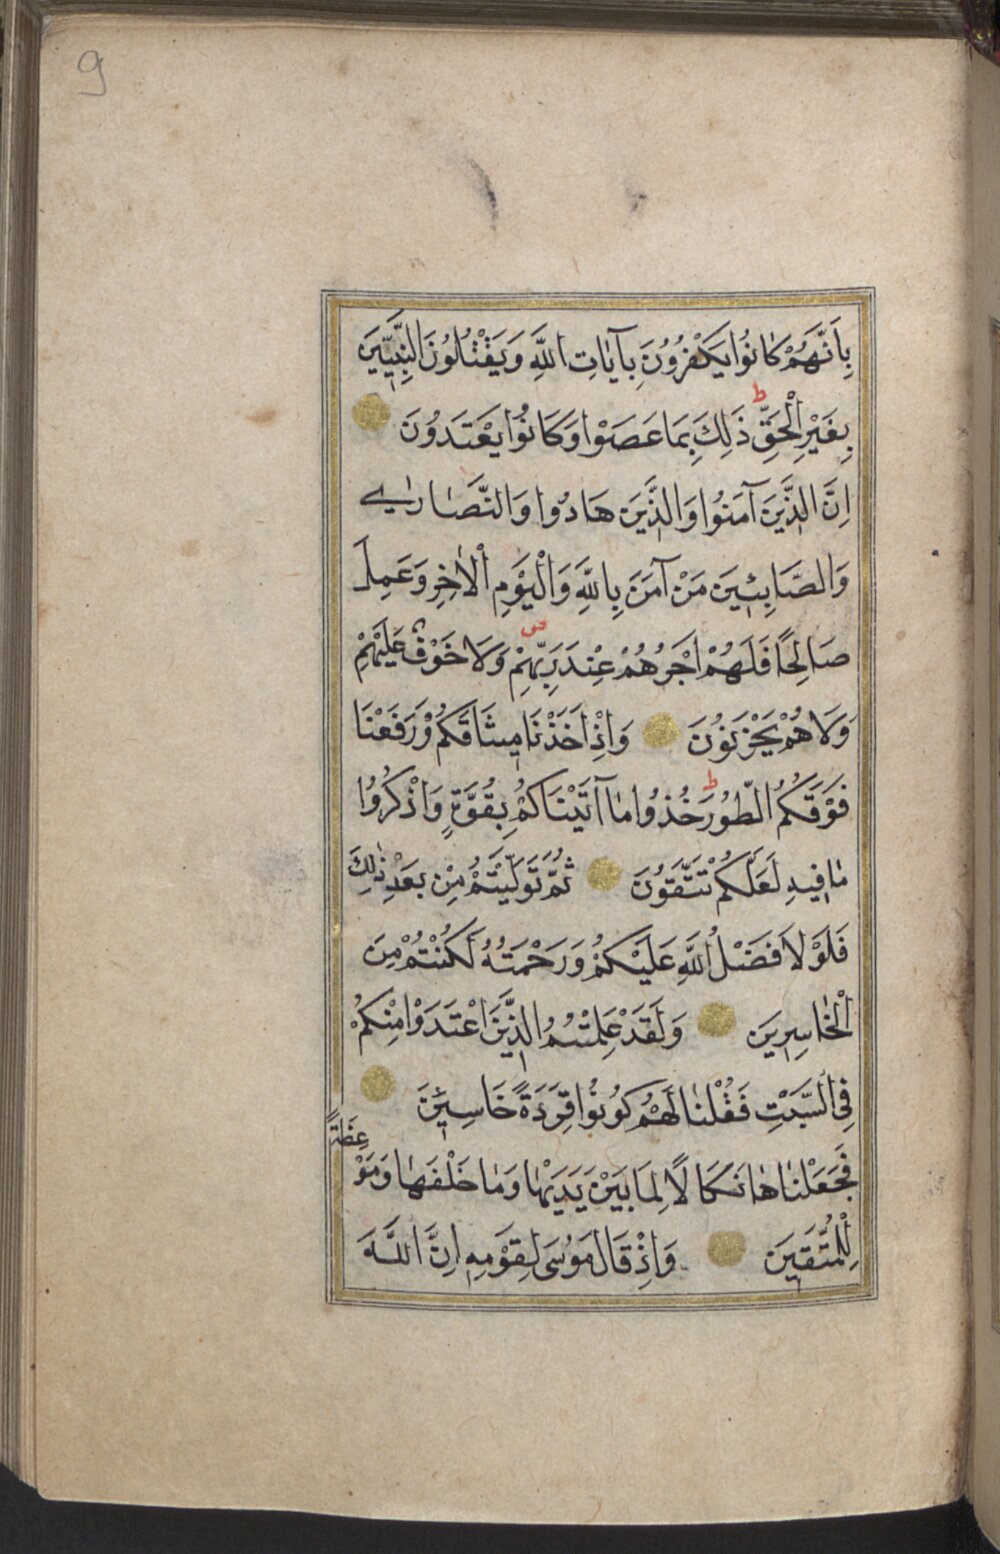 9
بِاَنَّهُمْ كَانُوا يَكْفُرُونَ بِآيَاتِ اللَّهِ وَيَقْتُلُونَ النَّبِيّٖنَ
بِغَيْرِ الْحَقِّ ط ذَلِكَ بِمَا عَصَوْا وَكَانُوا يَعْتَدُونَ
اِنَّ الَّذٖينَ آمَنُوا وَالَّذٖينَ هَادُوا وَالنَّصَارٰى
وَالصَّابِئٖينَ مَنْ آمَنَ بِاللَّهِ وَالْيَوْمِ الْاٰخِرِ وَعَمِلَ
صَالِحًا فَلَهُمْ اَجْرُهُمْ عِنْدَ رَبِّهِمْ ص وَلَا خَوْفٌ عَلَيْهِمْ
وَلَا هُمْ يَحْزَنُونَ وَاِذْ اَخَذْنَا مٖيثَاقَكُمْ وَرَفَعْنَا
فَوْقَكُمُ الطُّورَ ط خُذُوا مَا آتَيْنَاكُمْ بِقُوَّةٍ وَاذْكُرُوا
مَا فٖيهِ لَعَلَّكُمْ تَتَّقُونَ ثُمَّ تَوَلَّيْتُمْ مِنْ بَعْدِ ذٰلِكَ
فَلَوْلَا فَضْلُ اللَّهِ عَلَيْكُمْ وَرَحْمَتُهُ لَكُنْتُمْ مِنَ
الْخَاسِرٖينَ وَلَقَدْ عَلِمْتُمُ الَّذٖينَ اعْتَدَوْا مِنْكُمْ
فِي السَّبْتِ فَقُلْنَا لَهُمْ كُونُوا قِرَدَةً خَاسِئٖينَ
فَجَعَلْنَاهَا نَكَالًا لِمَا بَيْنَ يَدَيْهَا وَمَا خَلْفَهَا وَمَوْعِظَةً
لِلْمُتَّقٖينَ وَاِذْ قَالَ مُوسَى لِقَوْمِهٖ اِنَّ اللَّهَ